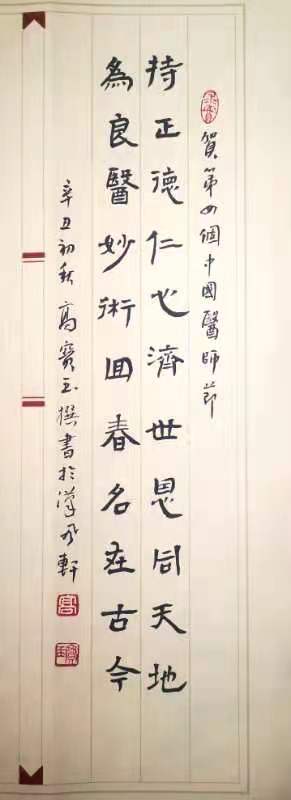 賀第四個中國醫師節
持正德仁心濟世恩同天地
為良醫妙術回春名在古今
辛丑初秋高寶玉撰書於漢風軒
高